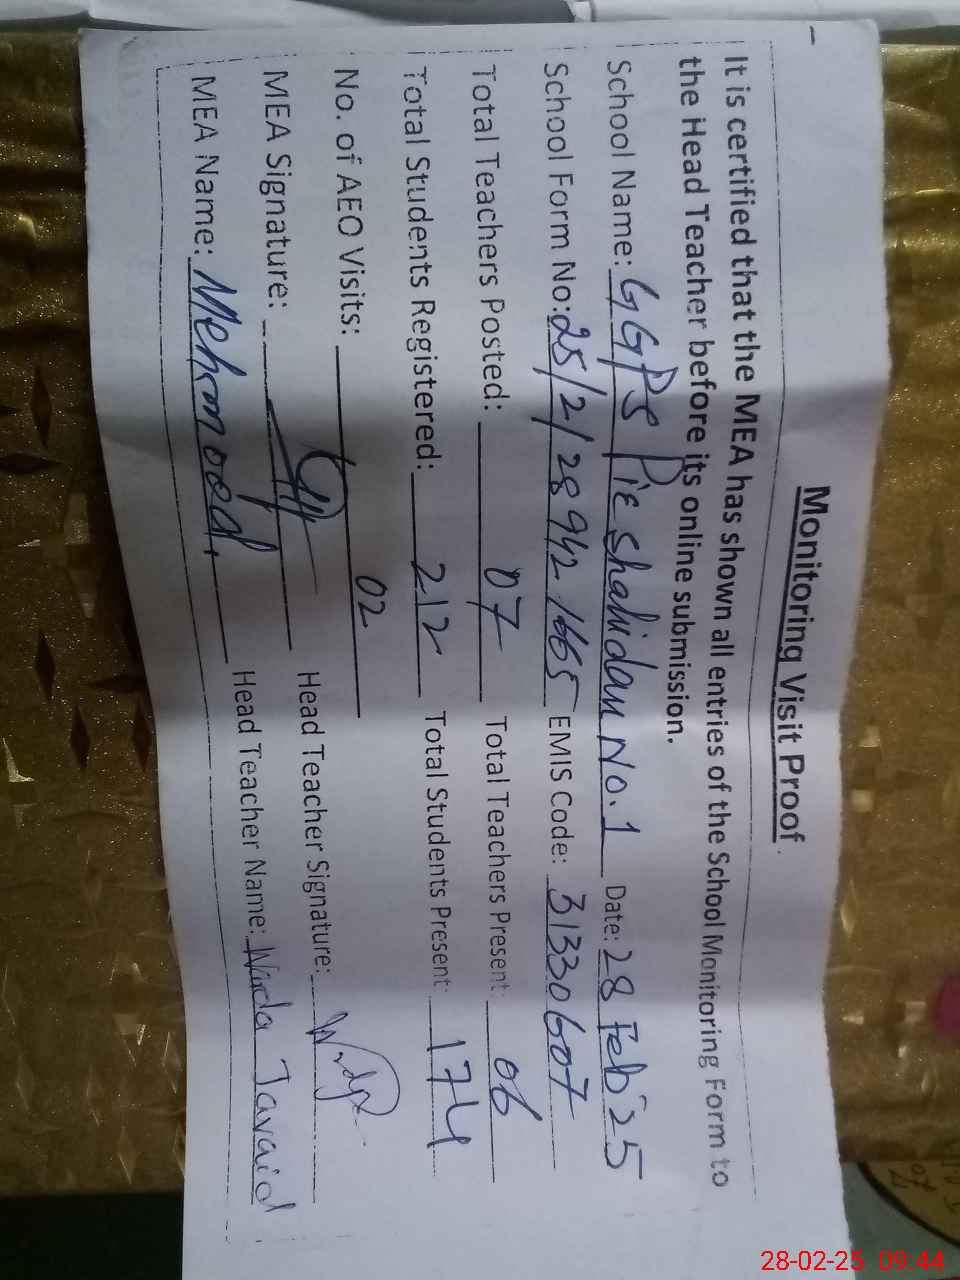 Monitoring Visit Proof
It is certified that the MEA has shown all entries of the School Monitoring Form to
the Head Teacher before its online submission.
School Name: GGPS Pir Shahidan No. 1 Date: 28 Feb 25
School Form No: 25/2/28942 1665 EMIS Code: 31330607
Total Teachers Posted: 07 Total Teachers Present: 06
Total Students Registered: 212 Total Students Present: 174
No. of AEO Visits: 02
MEA Signature: Head Teacher Signature:
MEA Name: Mehmood Head Teacher Name: Wirda Javaid
28-02-25 09:44